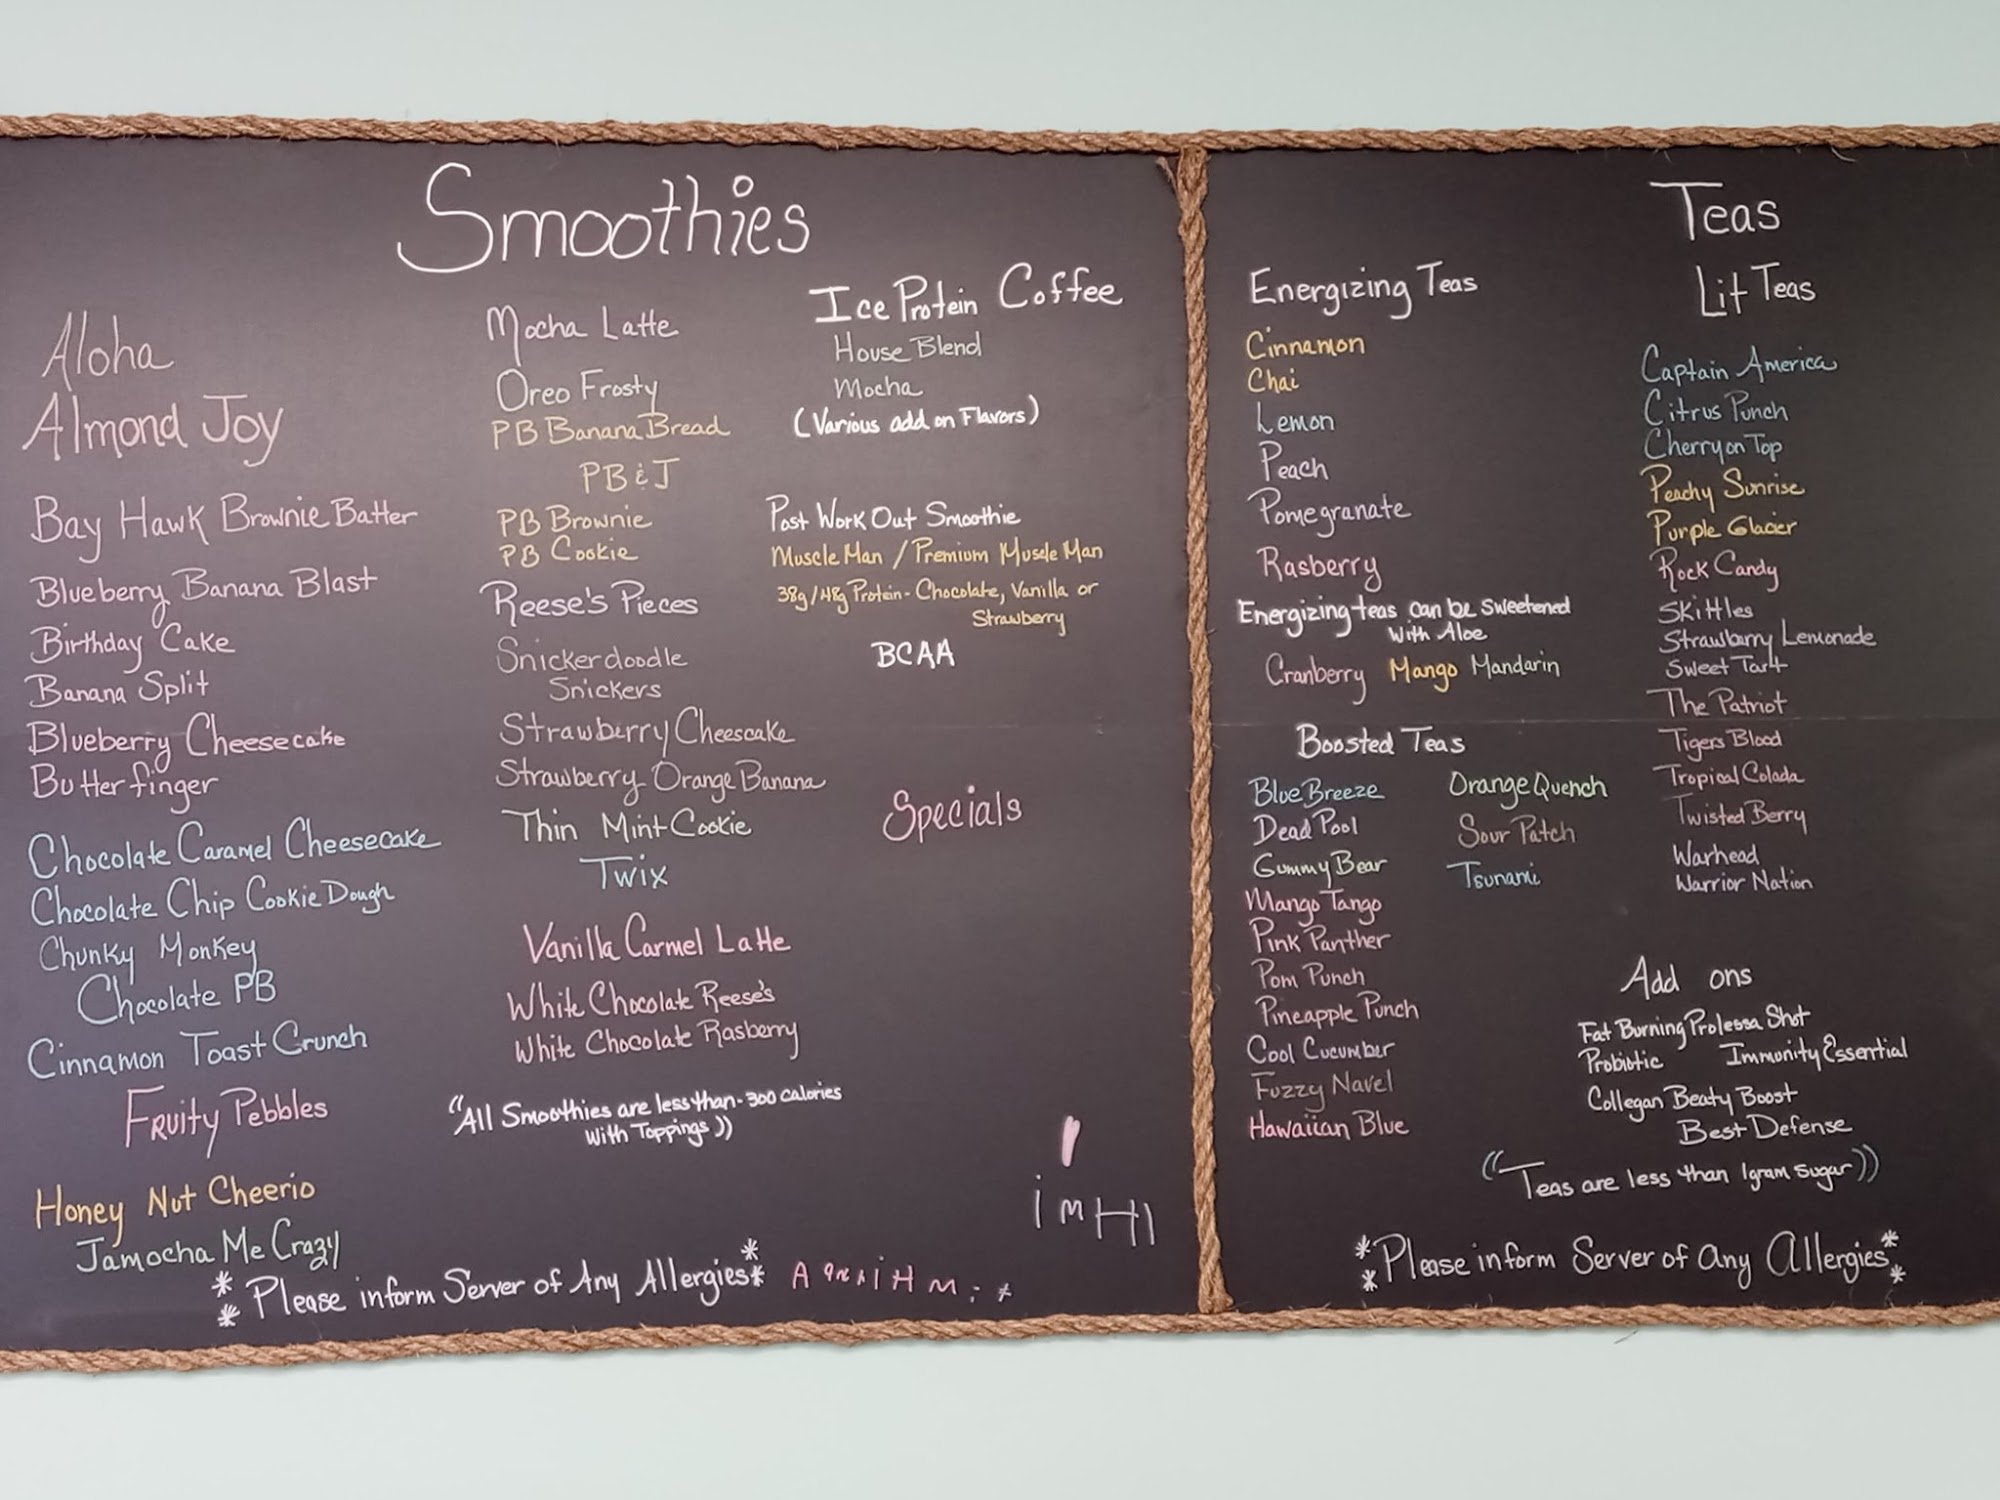 Smoothies
Aloha
Almond Joy
Bay Hawk Brownie Batter
Blueberry Banana Blast
Birthday Cake
Banana Split
Blueberry Cheesecake
Butterfinger
Chocolate Caramel Cheesecake
Chocolate Chip Cookie Dough
Chunky Monkey
Chocolate PB
Cinnamon Toast Crunch
Fruity Pebbles
Honey Nut Cheerio
Jamocha Me Crazy
Mocha Latte
Oreo Frosty
PB Banana Bread
PB & J
PB Brownie
PB Cookie
Reese's Pieces
Snickerdoodle
Snickers
Strawberry Cheescake
Strawberry Orange Banana
Thin Mint Cookie
Twix
Vanilla Carmel Latte
White Chocolate Reese's
White Chocolate Rasberry
"All Smoothies are less than - 300 calories
with Toppings))
Ice Protein Coffee
House Blend
Mocha
(Various add on Flavors)
Post Work Out Smoothie
Muscle Man / Premium Muscle Man
38g/48g Protein - Chocolate, Vanilla or
Strawberry
BCAA
Specials
im HI
** Please inform Server of Any Allergies**
Teas
Energizing Teas
Cinnamon
Chai
Lemon
Peach
Pomegranate
Rasberry
Energizing teas can be sweetened
with Aloe
Cranberry Mango Mandarin
Boosted Teas
Blue Breeze
Dead Pool
Gummy Bear
Mango Tango
Pink Panther
Pom Punch
Pineapple Punch
Cool Cucumber
Fuzzy Navel
Hawaiian Blue
Orange Quench
Sour Patch
Tsunami
Lit Teas
Captain America
Citrus Punch
Cherry on Top
Peachy Sunrise
Purple Glacier
Rock Candy
Skittles
Strawbarry Lemonade
Sweet Tart
The Patriot
Tigers Blood
Tropical Colada
Twisted Berry
Warhead
Warrior Nation
Add ons
Fat Burning Prolessa Shot
Probiotic Immunity Essential
Collegan Beaty Boost
Best Defense
((Teas are less than 1gram sugar))
** Please inform Server of any Allergies**